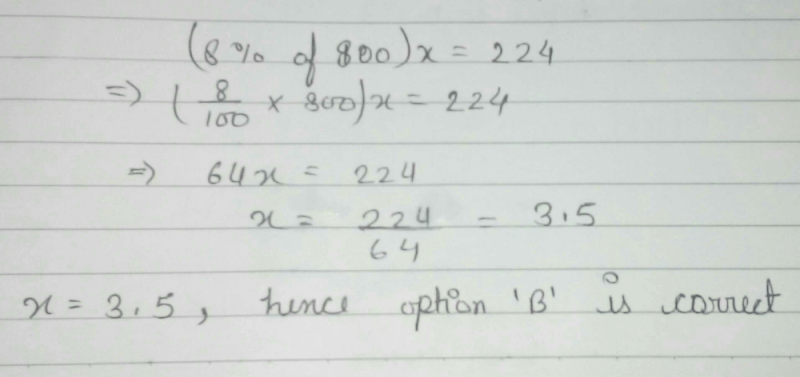 (8% of 800)x = 224
=> (8/100 × 800)x = 224
=> 64x = 224
x = 224/64 = 3.5
x = 3.5, hence option 'B' is correct